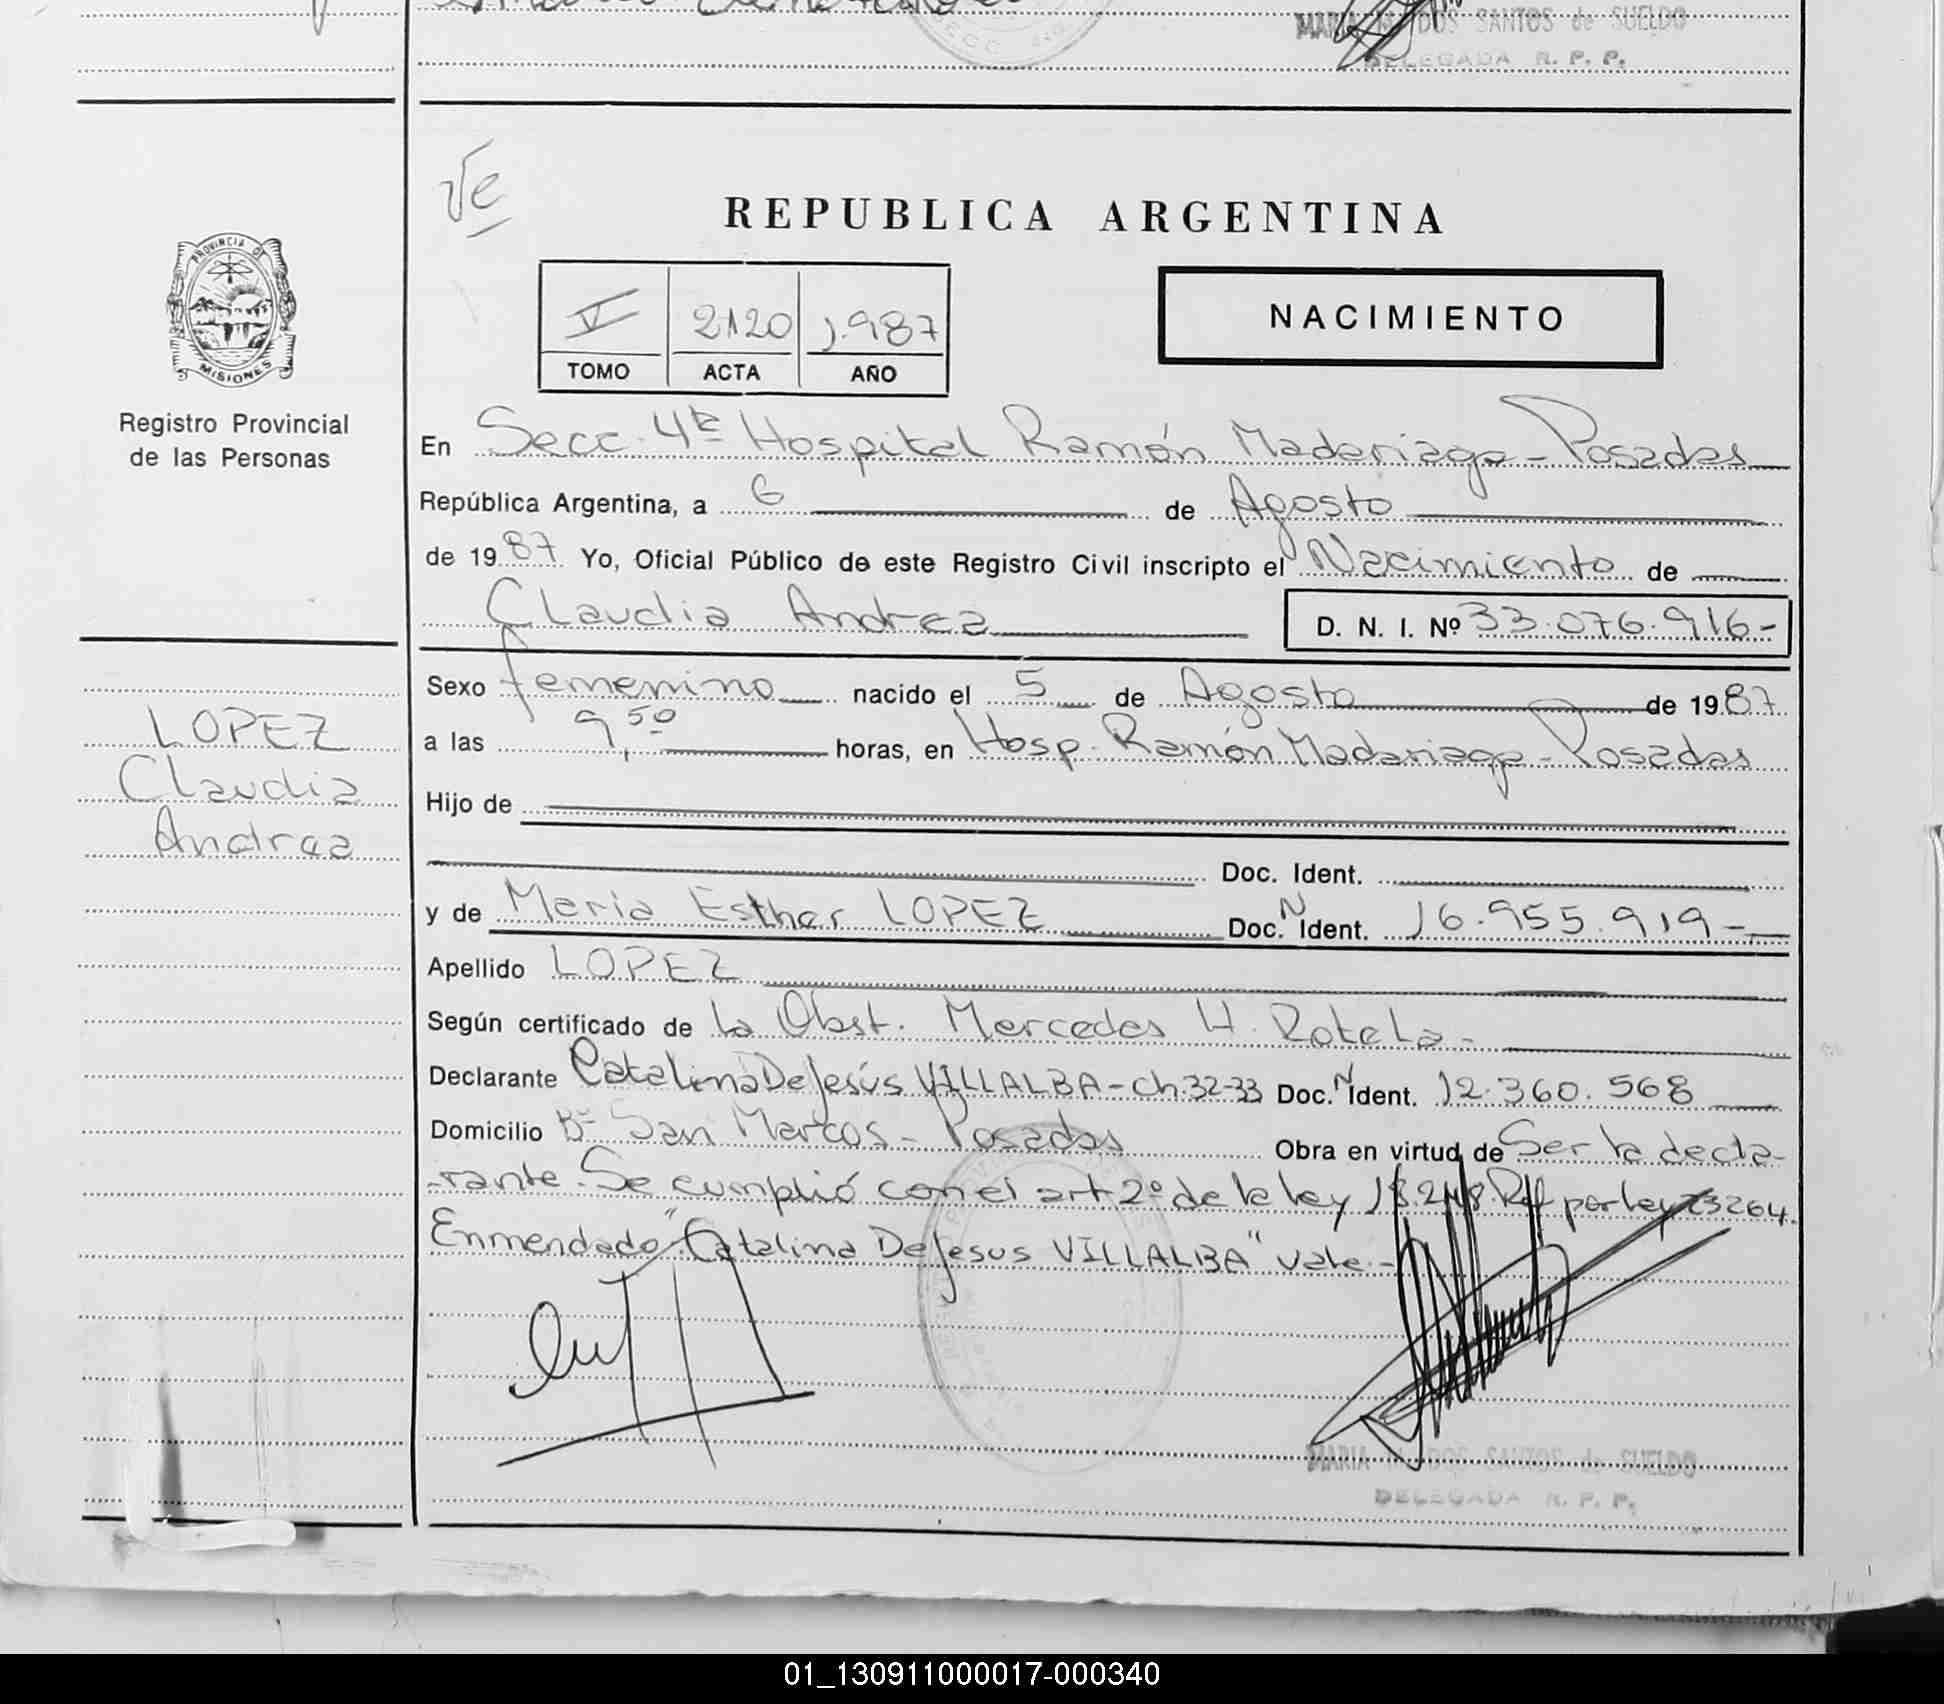 MARIA DOS SANTOS de SUELDO
DELEGADA R. P. P.
Ve
REPUBLICA ARGENTINA
PROVINCIA DE
MISIONES
Registro Provincial
de las Personas
V 2120 1.987
TOMO ACTA AÑO
NACIMIENTO
En Secc. 4ta Hospital Ramón Madariaga - Posadas
República Argentina, a 6 de Agosto
de 1987 Yo, Oficial Público de este Registro Civil inscripto el Nacimiento de
Claudia Andrea D. N. I. Nº 33.076.916-
Sexo femenino nacido el 5 de Agosto de 1987
a las 9,50 horas, en Hosp. Ramón Madariaga - Posadas
Hijo de
Doc. Ident.
y de Maria Esther LOPEZ Doc. N Ident. 16.955.919-
Apellido LOPEZ
Según certificado de la Obst. Mercedes H. Rotela-
Declarante Catalina De Jesús VILLALBA - Ch. 32-33 Doc. N Ident. 12.360.568
Domicilio Bº San Marcos - Posadas Obra en virtud de Ser la decla-
-rante. Se cumplió con el art 2º de la ley 18.248. Ref por ley 23264.
Enmendado "Catalina De Jesus VILLALBA" Vale.-
LOPEZ
Claudia
Andrea
MARIA DOS SANTOS de SUELDO
DELEGADA R. P. P.
01_130911000017-000340